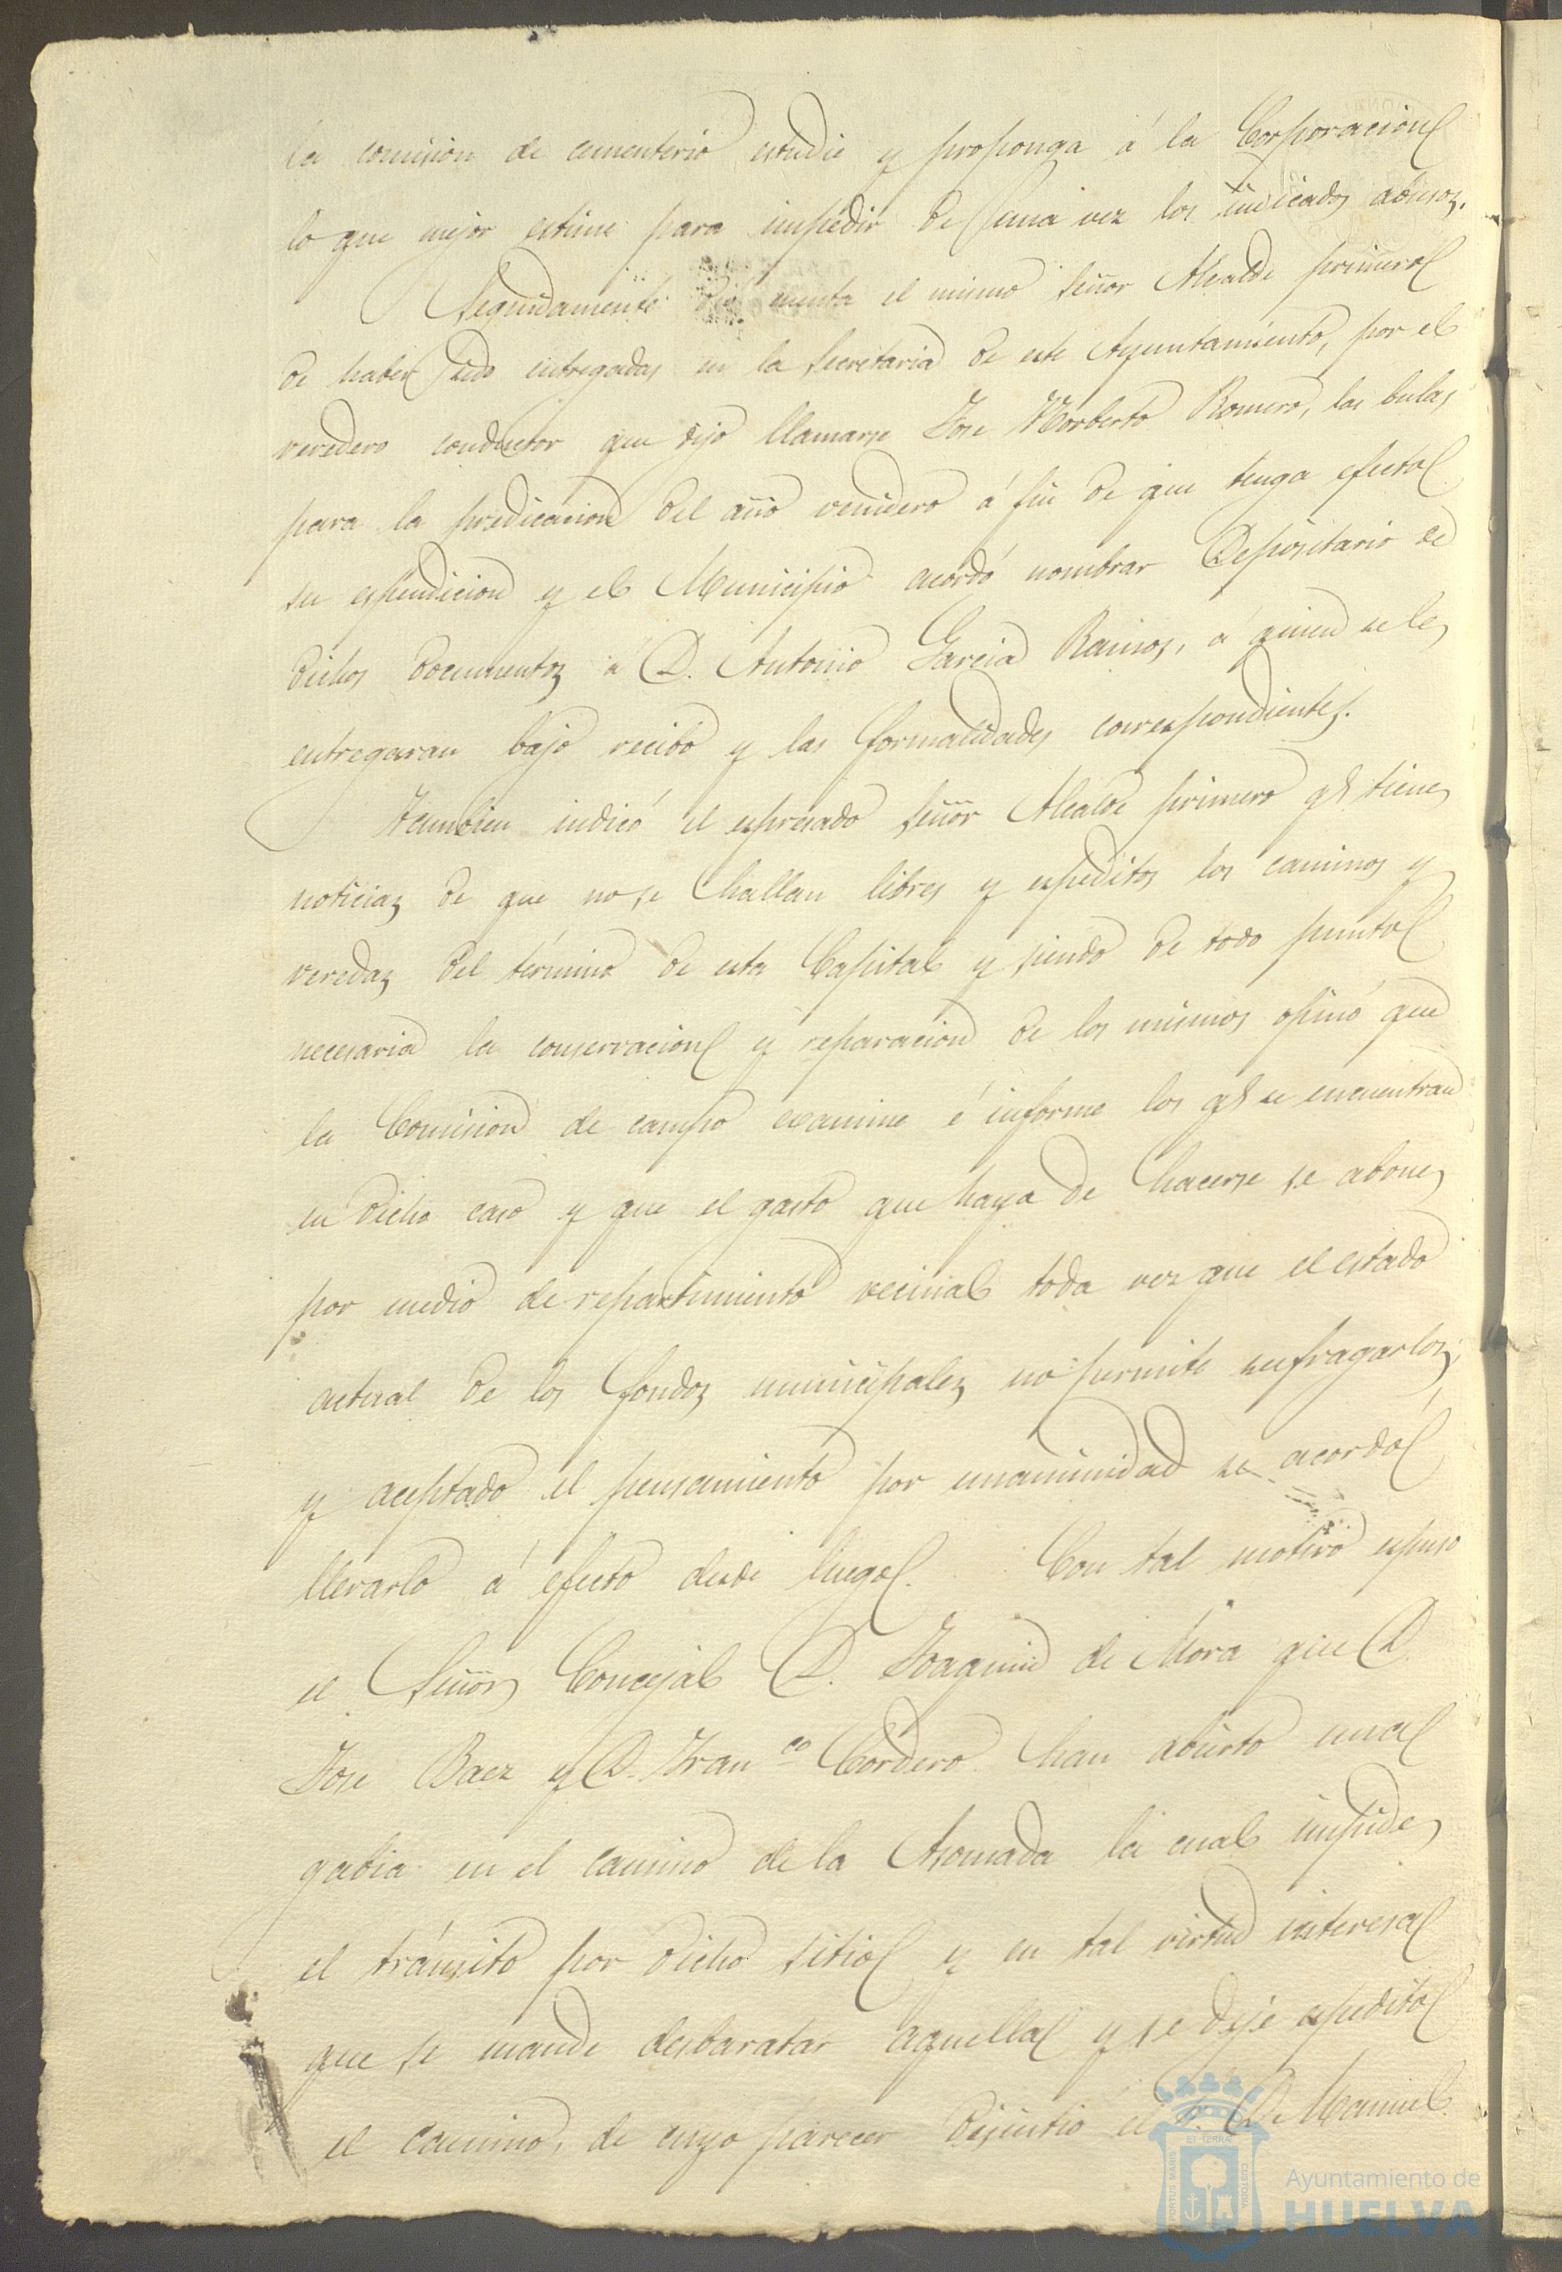 la comision de cementerio estudie y proponga á la Corporacion
lo que mejor estime para impedir de una vez los indicados abusos.
Seguidamente dió cuenta el mismo Señor Alcalde primero
de haber sido entregadas en la Secretaria de este Ayuntamiento, por el
veredero conductor que dijo llamarse Jose Norberto Romero, las bulas
para la predicacion del año venidero á fin de que tenga efecto
su espendicion y el Municipio acordó nombrar Depositario de
dichos documentos á D. Antonio Garcia Ramos, á quien se le
entregaran bajo recibo y las formalidades correspondientes.
Tambien indicó el espresado Señor Alcalde primero qe tiene
noticias de que no se hallan libres y espeditos los caminos y
veredas del término de esta Capital y siendo de todo punto
necesaria la conservacion y reparacion de los mismos opinó que
la Comision de campo examine é informe los qe se encuentran
en dicho caso y que el gasto que haya de hacerse se abone
por medio de repartimiento vecinal toda vez que el estado
actual de los fondos municipales no permite sufragarlos;
y aceptado el pensamiento por unanimidad se acordó
llevarlo á efecto desde luego. Con tal motivo espuso
el Señor Concejal D. Joaquin de Mora que D.
Jose Baez y D. Franco Cordero han abierto una
gabia en el camino de la Asomada la cual impide
el tránsito por dicho sitio y en tal virtud interesa
que se mande desbaratar aquella y se deje espedito
el camino, de cuyo parecer disintió el S. D. Manuel
Ayuntamiento de
HUELVA
PORTUS MARIS
ET TERRÆ
CUSTODIA